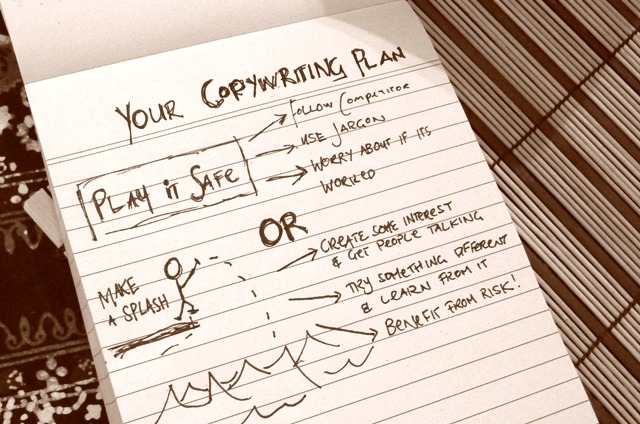 YOUR COPYWRITING PLAN
PLAY it SAFE
FOLLOW COMPETITOR
USE JARGON
WORRY ABOUT IF ITS
WORKED
OR
MAKE
A SPLASH
CREATE SOME INTEREST
& GET PEOPLE TALKING
TRY SOMETHING DIFFERENT
& LEARN FROM IT
BENEFIT FROM RISK!